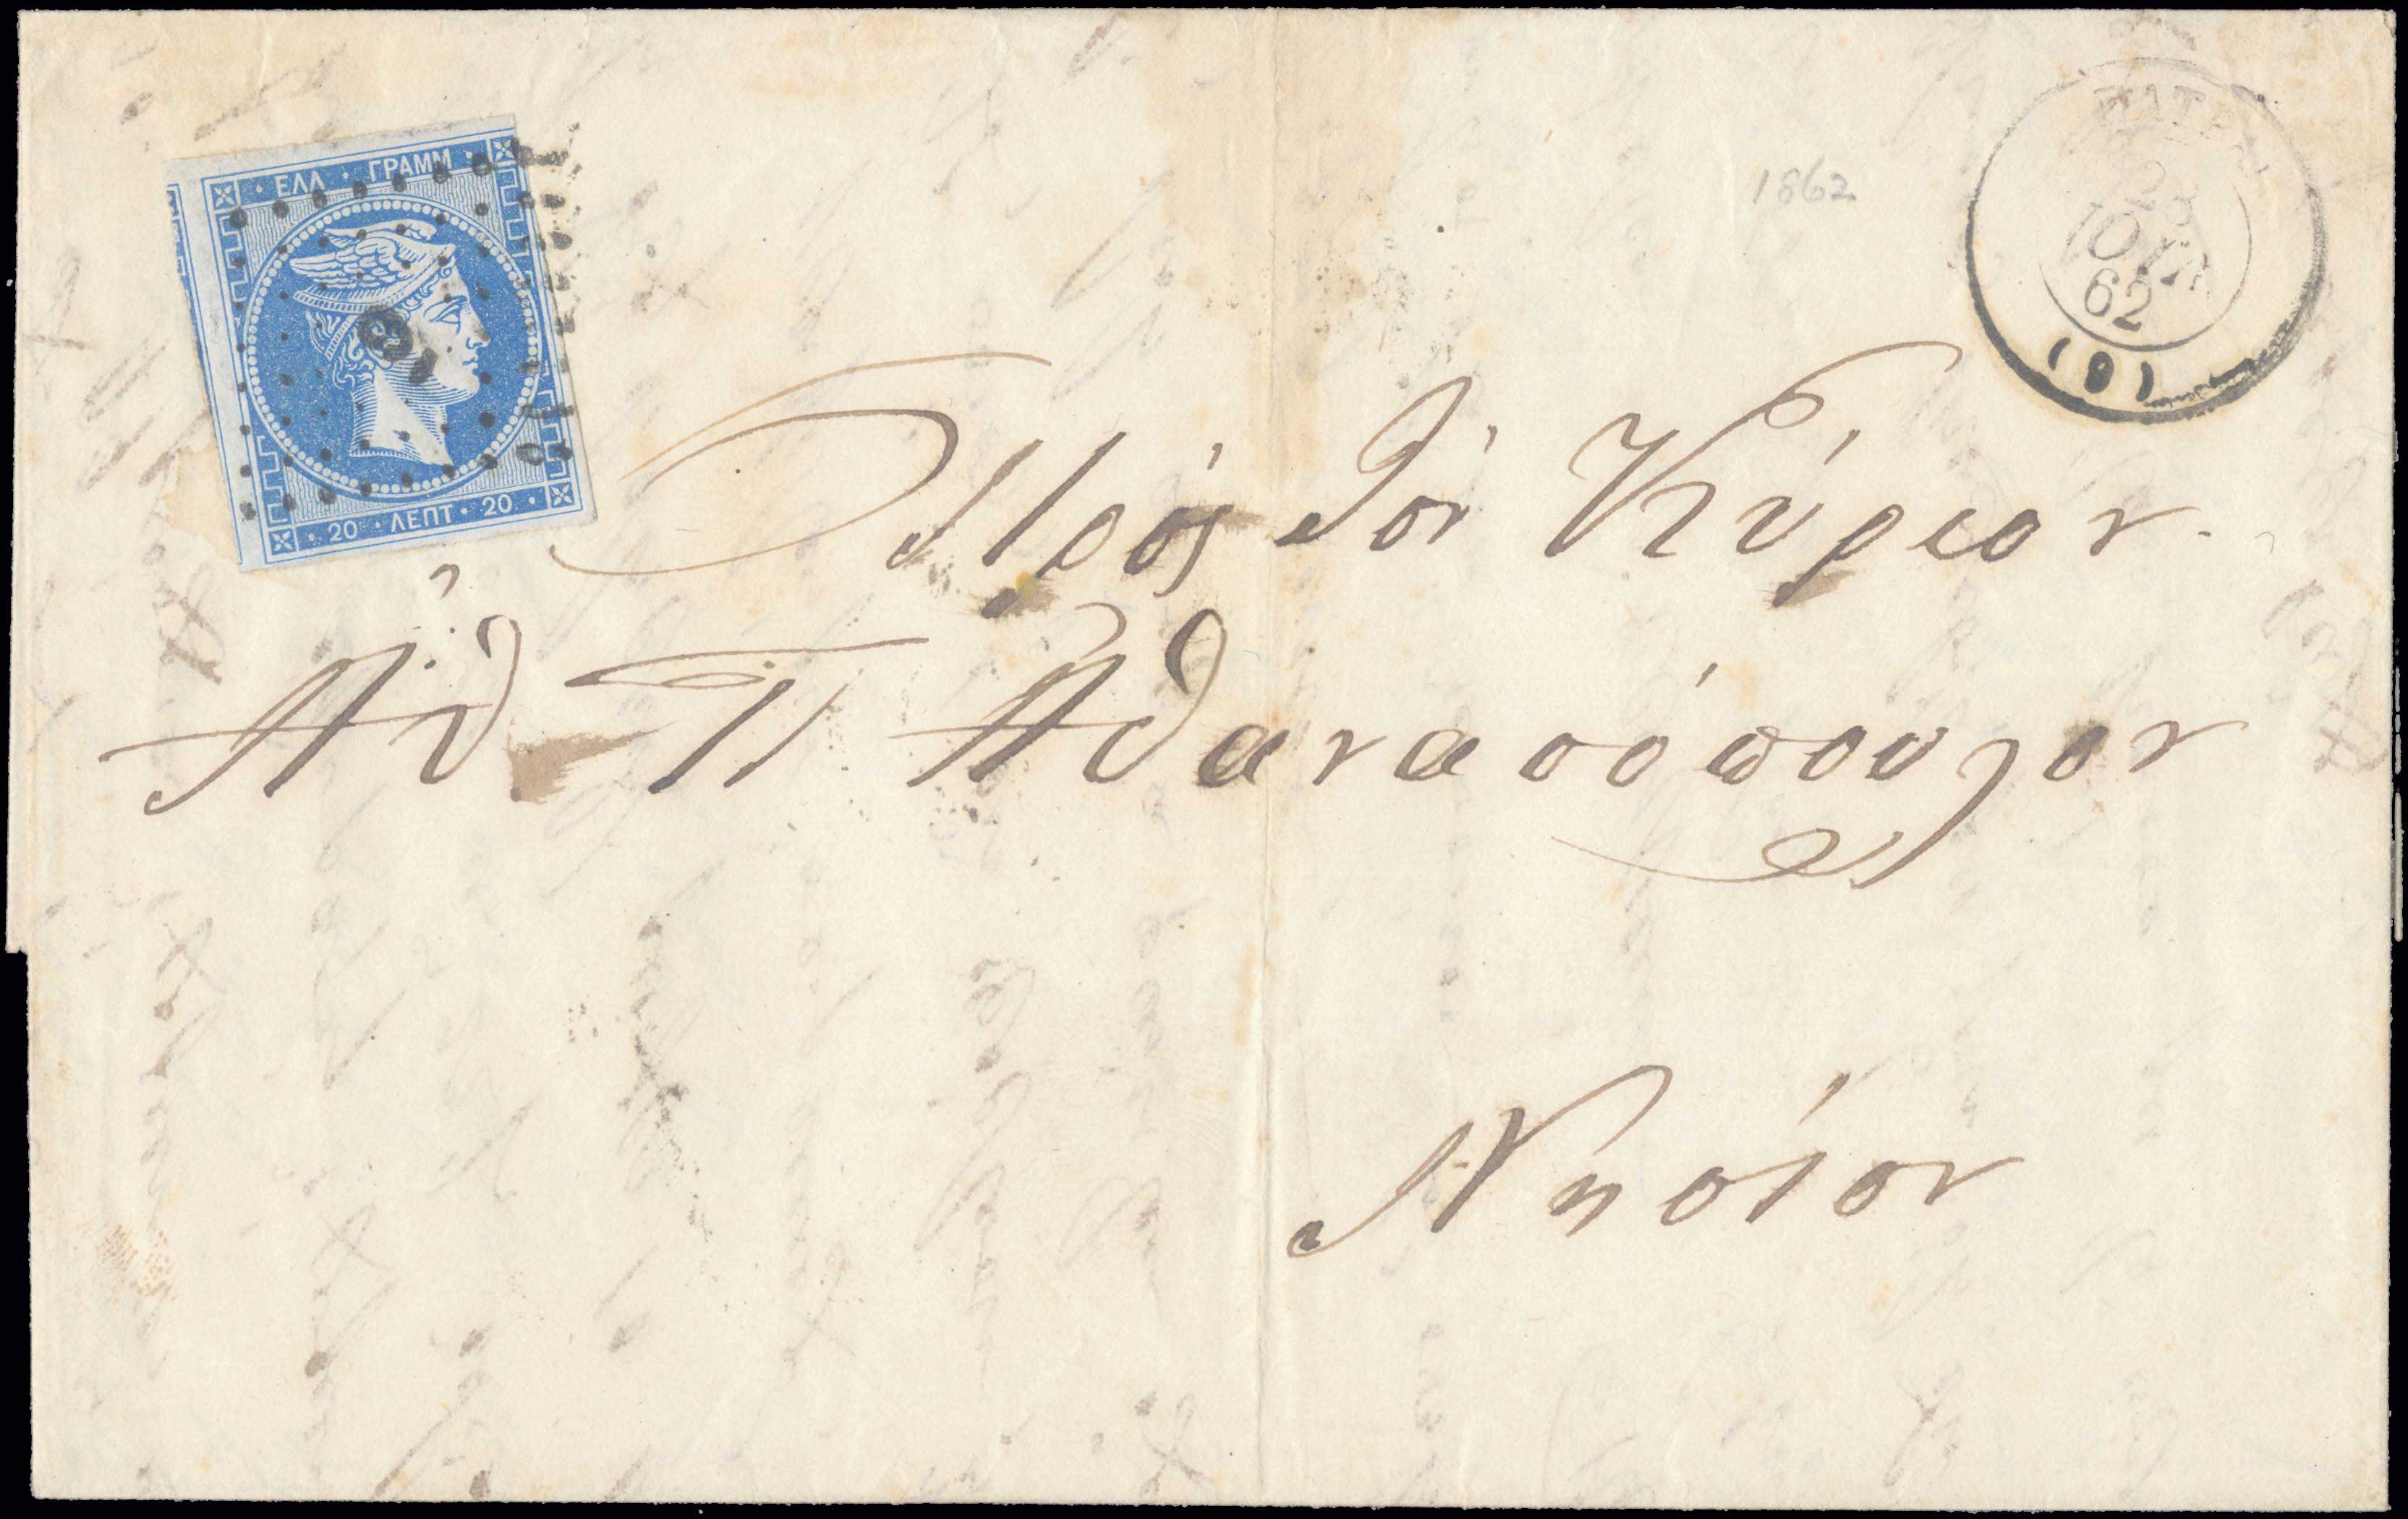 ΕΛΛ · ΓΡΑΜΜ
20 · ΛΕΠΤ · 20
9
1862
ΠΑΤΡΑΙ
28
ΙΟΥΛ
62
(9)
Πρός Τὸν Κύριον
Ἀθ Π Ἀθανασόπουλον
Νησίον